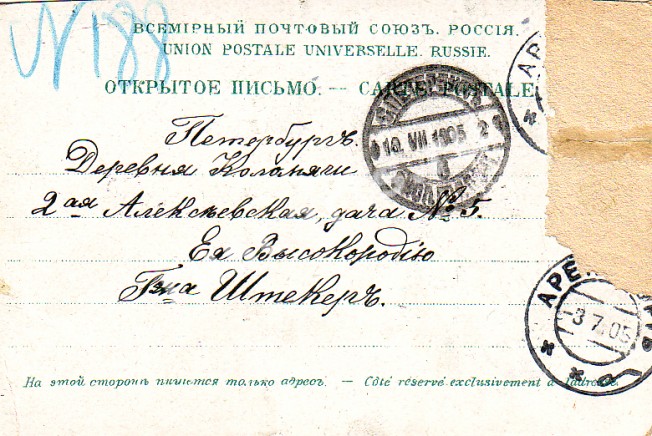 № 188
ВСЕМІРНЫЙ ПОЧТОВЫЙ СОЮЗЪ. РОССІЯ.
UNION POSTALE UNIVERSELLE. RUSSIE.
ОТКРЫТОЕ ПИСЬМО. — CARTE POSTALE
10 VII 1905
Петербургъ.
Деревня Коломяги
2ая Алексѣевская, дача № 5.
Ея Высокородію
Гжа Штекеръ.
АРЕ
3 7.05
На этой сторонѣ пишется только адресъ. — Côté réservé exclusivement à l'adresse.